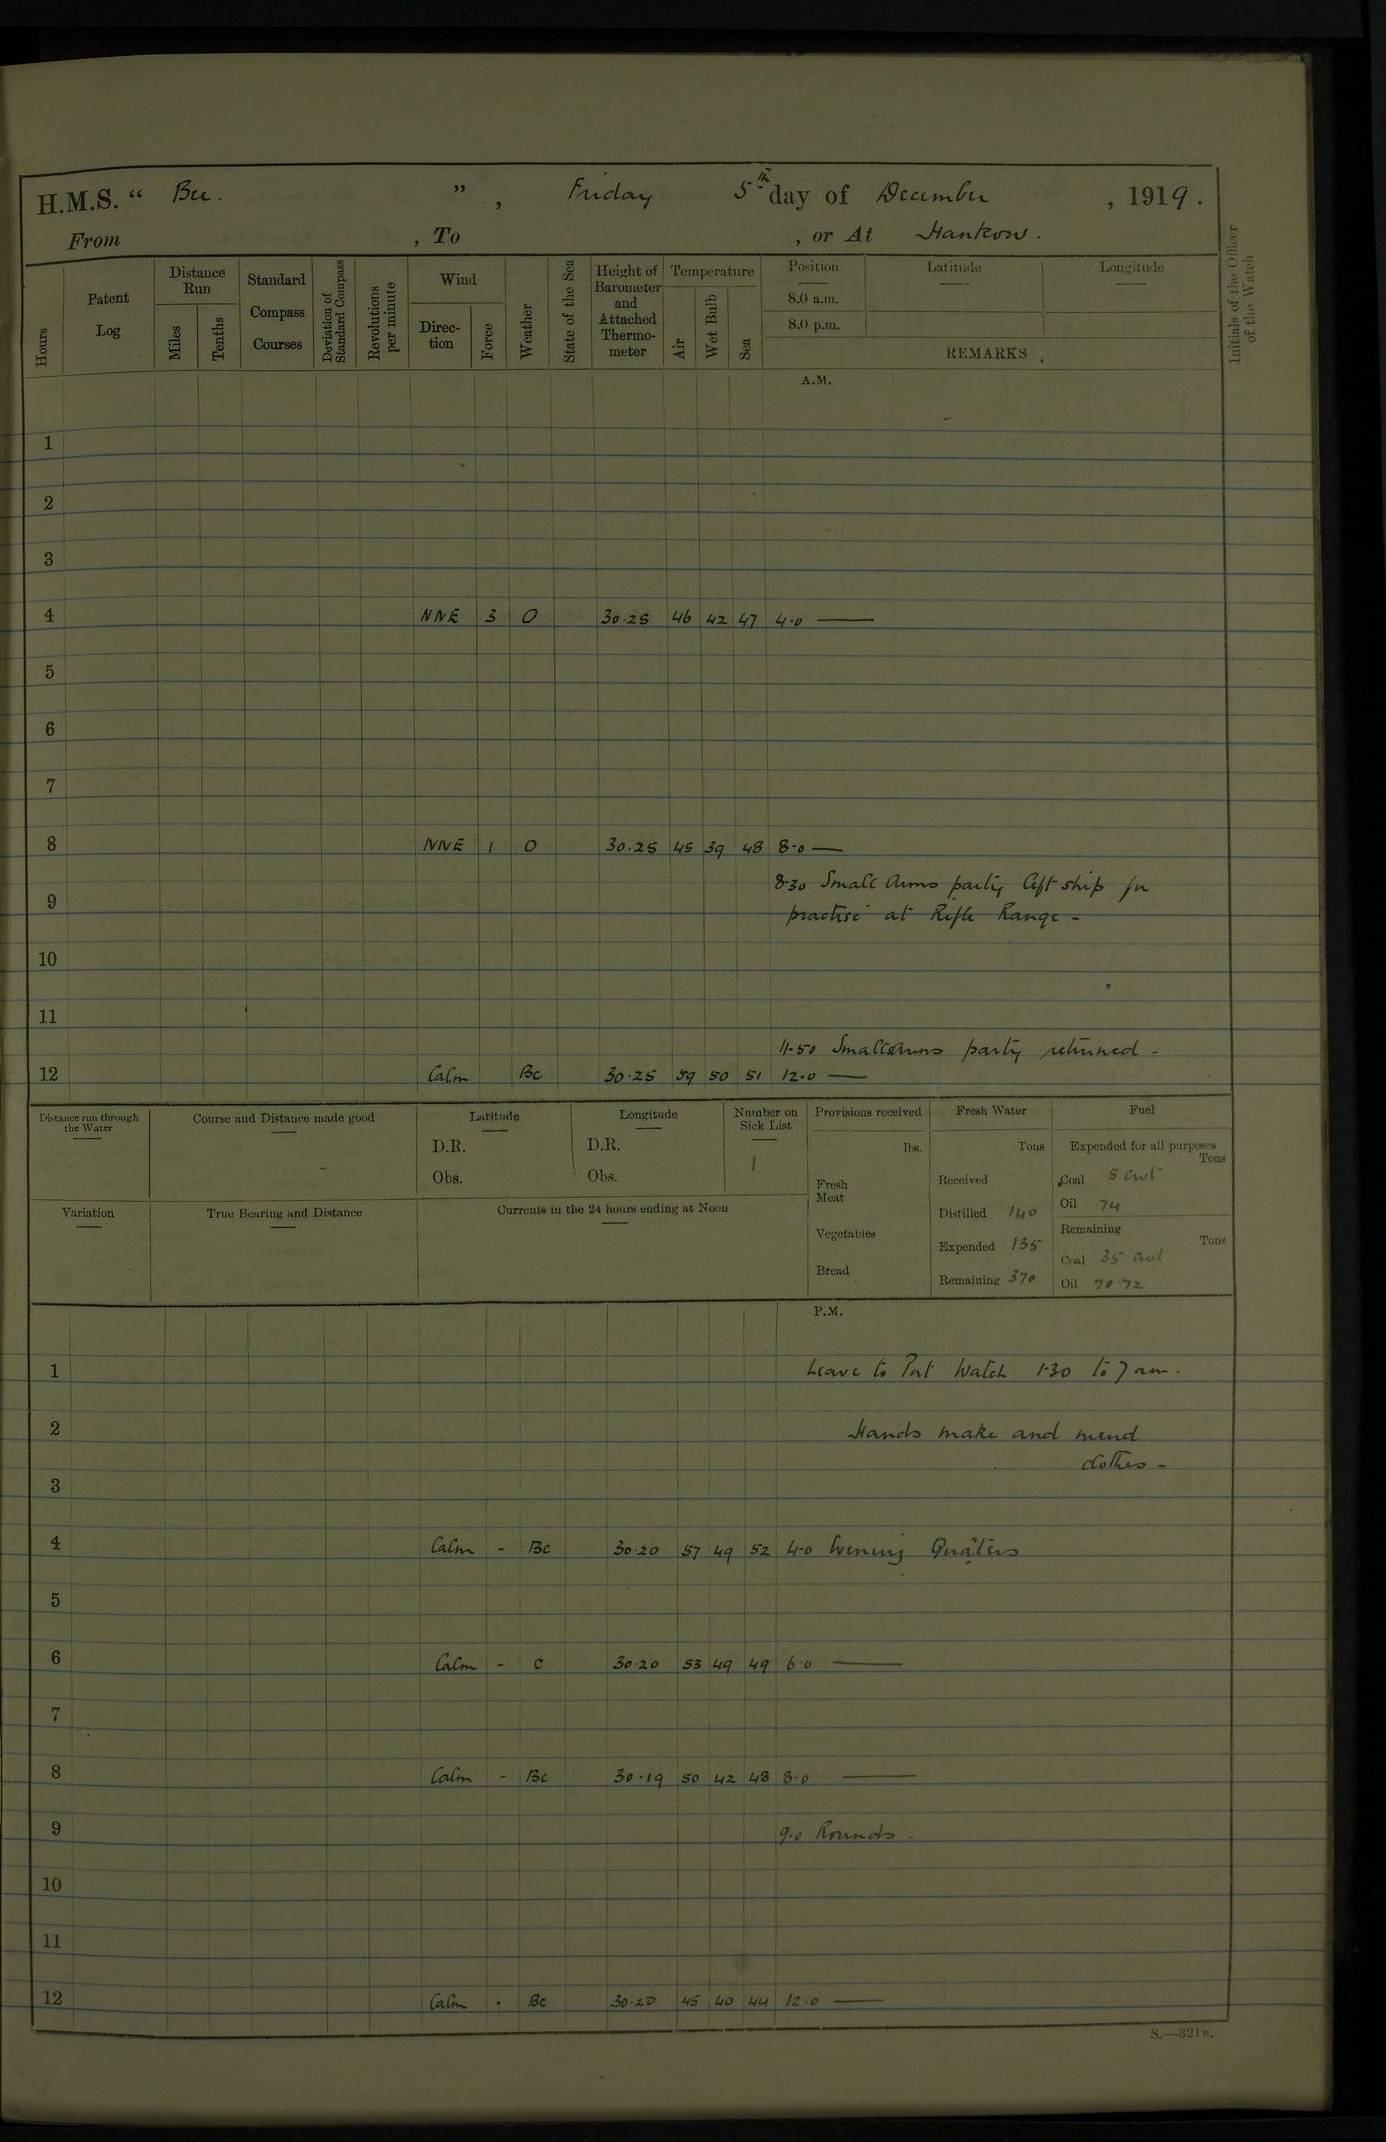 H.M.S. “ Bee. ” , Friday 5th day of December , 1919 .
From , To , or At Hankow .
Hours
Patent Log
Distance Run
Miles
Tenths
Standard Compass Courses
Deviation of Standard Compass
Revolutions per minute
Wind
Direc-tion
Force
Weather
State of the Sea
Height of Barometer and Attached Thermo-meter
Temperature
Air
Wet Bulb
Sea
Position Latitude Longitude
8.0 a.m.
8.0 p.m.
REMARKS
Initials of the Officer of the Watch
A.M.
1
2
3
4 NNE 3 O 30.25 46 42 47 4.0 —
5
6
7
8 NNE 1 O 30.25 45 39 48 8.0 —
8.30 Small Arms party left ship for
9 practise at Rifle Range -
10
11
11.50 Small Arms party returned -
12 Calm Bc 30.25 59 50 51 12.0 —
Distance run through the Water
Course and Distance made good
Latitude
D.R.
Obs.
Longitude
D.R.
Obs.
Number on Sick List
1
Provisions received
lbs.
Fresh Meat
Vegetables
Bread
Fresh Water
Tons
Received
Distilled 140
Expended 135
Remaining 370
Fuel
Expended for all purposes
Tons
Coal 5 cwt
Oil .74
Remaining
Tons
Coal 35 cwt
Oil 70.72
Variation
True Bearing and Distance
Currents in the 24 hours ending at Noon
P.M.
1 Leave to Port Watch 1.30 to 7 am.
2 Hands make and mend
clothes -
3
4 Calm - Bc 30.20 57 49 52 4.0 Evening Quarters
5
6 Calm - C 30.20 53 49 49 6.0 —
7
8 Calm - Bc 30.19 50 42 48 8.0 —
9 9.0 Rounds .
10
11
12 Calm . Bc 30.20 45 40 44 12.0 —
S.—321B.